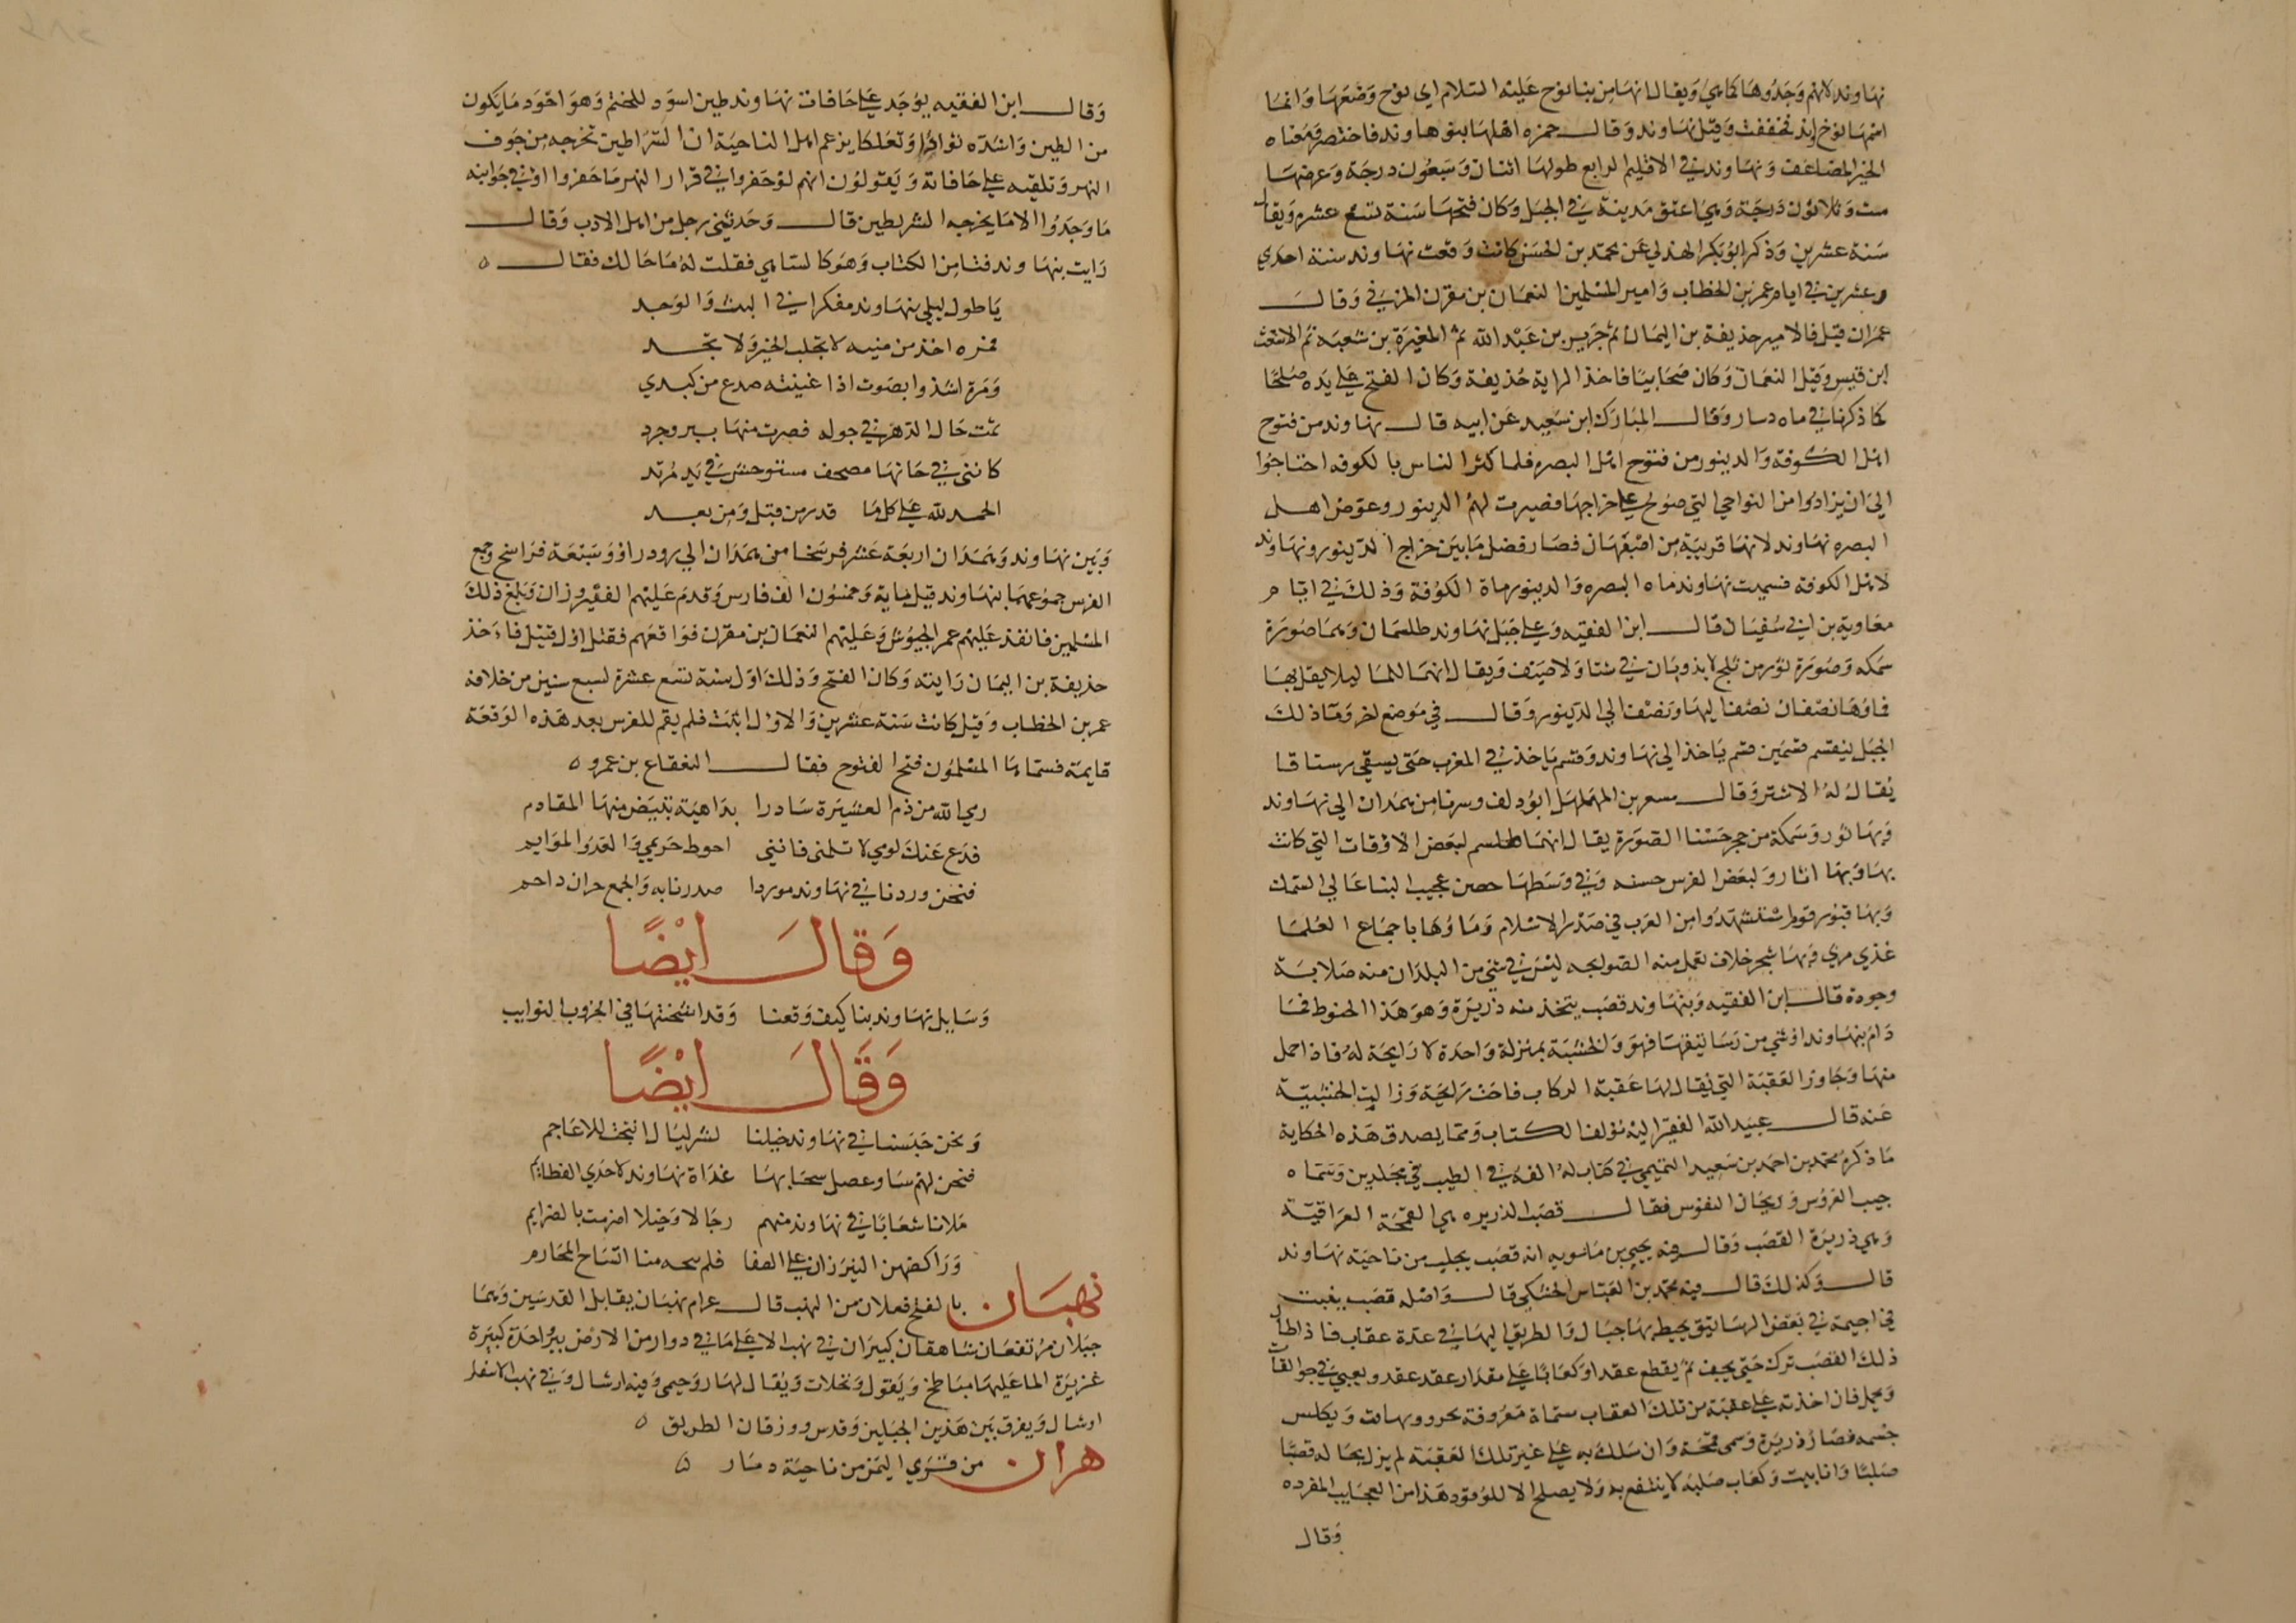 نهاوند لانهم وجدوها كما هي ويقال انها من بنا نوح عليه السلام اي نوح وضعها وانما
اسمها نوح اوند فخففت وقيل نهاوند وقال حمزه اصلها بنوهاوند فاختصر ومعناه
الخير المضاعف ونهاوند في الاقليم الرابع طولها اثنان وسبعون درجة وعرضها
ست وثلاثون درجة وهي اعتق مدينة في الجبل وكان فتحها سنة تسع عشرة ويقال
سنة عشرين وذكر ابو بكر الهذلي عن محمد بن الحسن كانت وقعت نهاوند سنة احدي
وعشرين في ايام عمر بن الخطاب وامير المسلمين النعمان بن مقرن المزني وقال
عمر ان قتل فالامير حذيفة بن اليمان ثم جرير بن عبد الله ثم المغيرة بن شعبة ثم الاشعث
ابن قيس وقتل النعمان وكان صحابيا فاخذ الراية حذيفة وكان الفتح علي يده صلحا
كما ذكرنا في ماه دينار وقال المبارك ابن سعيد عن ابيه قال نهاوند من فتوح
اهل الكوفة والدينور من فتوح اهل البصره فلما كثر الناس بالكوفه احتاجوا
الي ان يزادوا من النواحي التي صولح علي خراجها فصيرت لهم الدينور وعوض اهل
البصره نهاوند لانها قريبة من اصبهان فصار فضل ما بين خراج الدينور ونهاوند
لاهل الكوفه فسميت نهاوند ماه البصره والدينور ماة الكوفة وذلك في ايام
معاوية بن ابي سفيان قال ابن الفقيه وعلي جبل نهاوند طلسمان وهما صورة
سمكه وصورة ثور من ثلج لا يذوبان في شتا ولا صيف ويقال انهما للما ليلا يقل بها
فماوها نصفان نصف اليها ونصف الي الدينور وقال في موضع اخر وماذلك
الجبل ينقسم قسمين قسم ياخذ الي نهاوند وقسم ياخذ في المغرب حتي يسقي رستاقا
يقال له الاشتر وقال مسعر بن المهلهل ابو دلف وسرنا من همدان الي نهاوند
وبها ثور وسمكة من حجر حسنا الصورة يقال انهما طلسم لبعض الاوقات التي كانت
بها وبها اثار ولبعض الفرس حسنه وفي وسطها حصن عجيب البنا عالي السمك
وبها قبور قوم استشهدوا من العرب في صدر الاسلام وماوها باجماع العلما
غذي مري وبها شجر خلاف تعمل منه الصوالجه ليس في شي من البلدان منه صلابة
وجودة قال ابن الفقيه وبنهاوند قصب يتخذ منه ذريرة وهو هذا الحنوط فما
دام بنهاوند او شي من رساتيقها فهو والخشبة بمنزلة واحدة لا رايحة له فاذا حمل
منها وجاوز العقبة التي يقال لها عقبة الركاب فاحت رايحة وزالت الخشبية
عنه قال عبيد الله الفقير اليه مولف الكتاب ومما يصدق هذه الحكاية
ما ذكره محمد بن احمد بن سعيد التميمي في كتاب له الفه في الطيب في مجلدين وسماه
جيب العروس وريحان النفوس فقال قصب الذريره هي القمحة العراقية
وهي ذريرة القصب وقال فيه يحيي بن ماسويه انه قصب يجلب من ناحية نهاوند
قال وكذلك قال فيه محمد بن العباس الخشكي قال واصله قصب ينبت
في اجمة في بعض الرساتيق يحيط بها جبال والطريق اليها في عدة عقاب فاذا طال
ذلك القصب ترك حتي يجف ثم يقطع عقدا وكعابا علي مقدار عقد عقد ويعبي في جوالقات
ويحمل فان اخذته علي عقبة من تلك العقاب مسماة معروفة نخر وبهافت وتكلس
جسمه فصار ذريرة وسمي قمحة وان سلك به علي غير تلك العقبة لم يزل بحاله قصبا
صلبا وانابيب وكعاب صلبه لا ينتفع به ولا يصلح الا للوقود هذا من العجايب المفرده
وقال
وقال ابن الفقيه يوجد علي حافات نهاوند طين اسود للختم وهو اجود ما يكون
من الطين واشده سوادا وتعلكا يزعم اهل الناحية ان السراطين تخرجه من جوف
النهر وتلقيه علي حافاته ويقولون انهم لو حفروا في قرار النهر ما حفروا او في جوانبه
ما وجدوا الا ما يخرجه السرطين قال وحدثني رجل من اهل الادب وقال
رايت بنهاوند فتا من الكتاب وهو كالساهي فقلت له ما حالك فقال ٥
يا طول ليلي بنهاوند مفكرا في البث والوجد
فمره اخذ من منيه لا تجلب الخير ولا تجد
ومرة اشدوا بصوت اذا غنيته صدع من كبدي
ثمت حال الدهر في جوله فصرت منها ببروجرد
كانني في خانها مصحف مستوحش في يد مرتد
الحمد لله علي كل ما قدر من قبل ومن بعد
وبين نهاوند وهمدان اربعة عشر فرسخا من همدان الي رودراوو سبعة فراسخ وجمع
الفرس جموعهما بنهاوند قيل ماية وخمسون الف فارس وقدم عليهم الفيروزان وبلغ ذلك
المسلمين فانفذ عليهم عمر الجيوش وعليهم النعمان بن مقرن فواقعهم فقتل اول قتيل فاخذ
حذيفة بن اليمان رايته وكان الفتح وذلك اول سنة تسع عشرة لسبع سنين من خلافة
عمر بن الخطاب وقيل كانت سنة عشرين والاول اثبت فلم يقم للفرس بعد هذه الوقعة
قايمة فسماها المسلمون فتح الفتوح فقال القعقاع بن عمرو ٥
رمي الله من ذم العشيرة سادرا بداهية تبيض منها المقادم
فدع عنك لومي لا تلمني فانني احوط حريمي والعدو الموايم
فنحن وردنا في نهاوند موردا صدرنا به والجمع حران واحم
وقال ايضًا
وسايل نهاوند بنا كيف وقعنا وقد اثخنتها في الحروب النوايب
وقال ايضًا
ونحن حبسنا في نهاوند خيلنا لشر ليال انتجت للاعاجم
فنحن لهم سا وعصل سحابها غداة نهاوند لاحدي العظايم
ملانا شعابا في نهاوند منهم رجالا وخيلا اضرمت بالضرايم
وراكضهن الفيرزان علي الصفا فلم منا اتساح المخارم
نهبان بالفتح فعلان من النهب قال عرام نهبان يقابل القدسين وهما
جبلان مرتفعان شاهقان كبيران في نهب الاعلي ما في دوار من الارض بير احدة كبيرة
غزيرة الما عليها مباطخ ويقول ونخلات ويقال لها روحيمي وفيه ارشال وفي نهب الاسفل
اوشال ويفرق بين هذين الجبلين وقدس وورقان الطريق ٥
هران من قري اليمن من ناحية دمار ٥